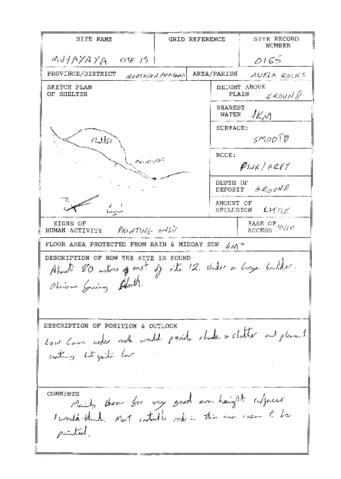 SITE NAME
GRID REFERENCE
SITE RECORD NUMBER
MUYAYAYA SITE 13
0165
PROVINCE/DISTRICT
AREA/PARISH
MWELA ROCKS
SKETCH PLAN
OF SHELTER
HEIGHT ABOVE
PLAIN GROUND
NEAREST
WATER 1KM
SURFACE:
SMOOTH
ROCK:
PINK/GREY
DEPTH OF
DEPOSIT GROUND
AMOUNT OF
SECLUSION LITTLE
Shelter
PAINTINGS
SIGNS OF
HUMAN ACTIVITY PAINTING ONLY
EASE OF
ACCESS GOOD
FLOOR AREA PROTECTED FROM RAIN & MIDDAY SUN 4M²
DESCRIPTION OF HOW THE SITE IS FOUND
About 80 metres east of site 12. Under a large boulder.
Obvious facing North.
DESCRIPTION OF POSITION & OUTLOOK
Low cave under rock would provide shade & shelter and pleasant
seating but quite low
COMMENTS
Mainly there for very good own height surfaces
I would think. Most suitable rocks in this area seem to be
painted.